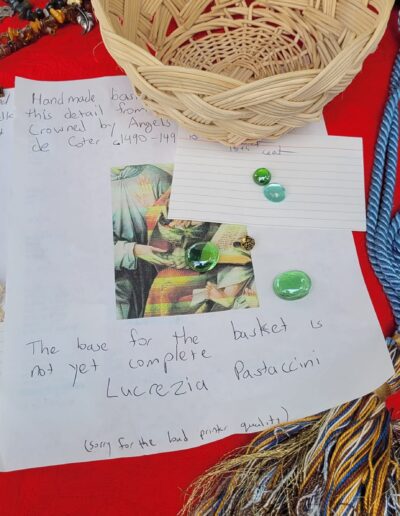 Handmade bask
this detail from
Crowned by Angels
de Coter c1490-149
The base for the basket is
not yet complete
Lucrezia Pastaccini
(sorry for the bad printer quality)